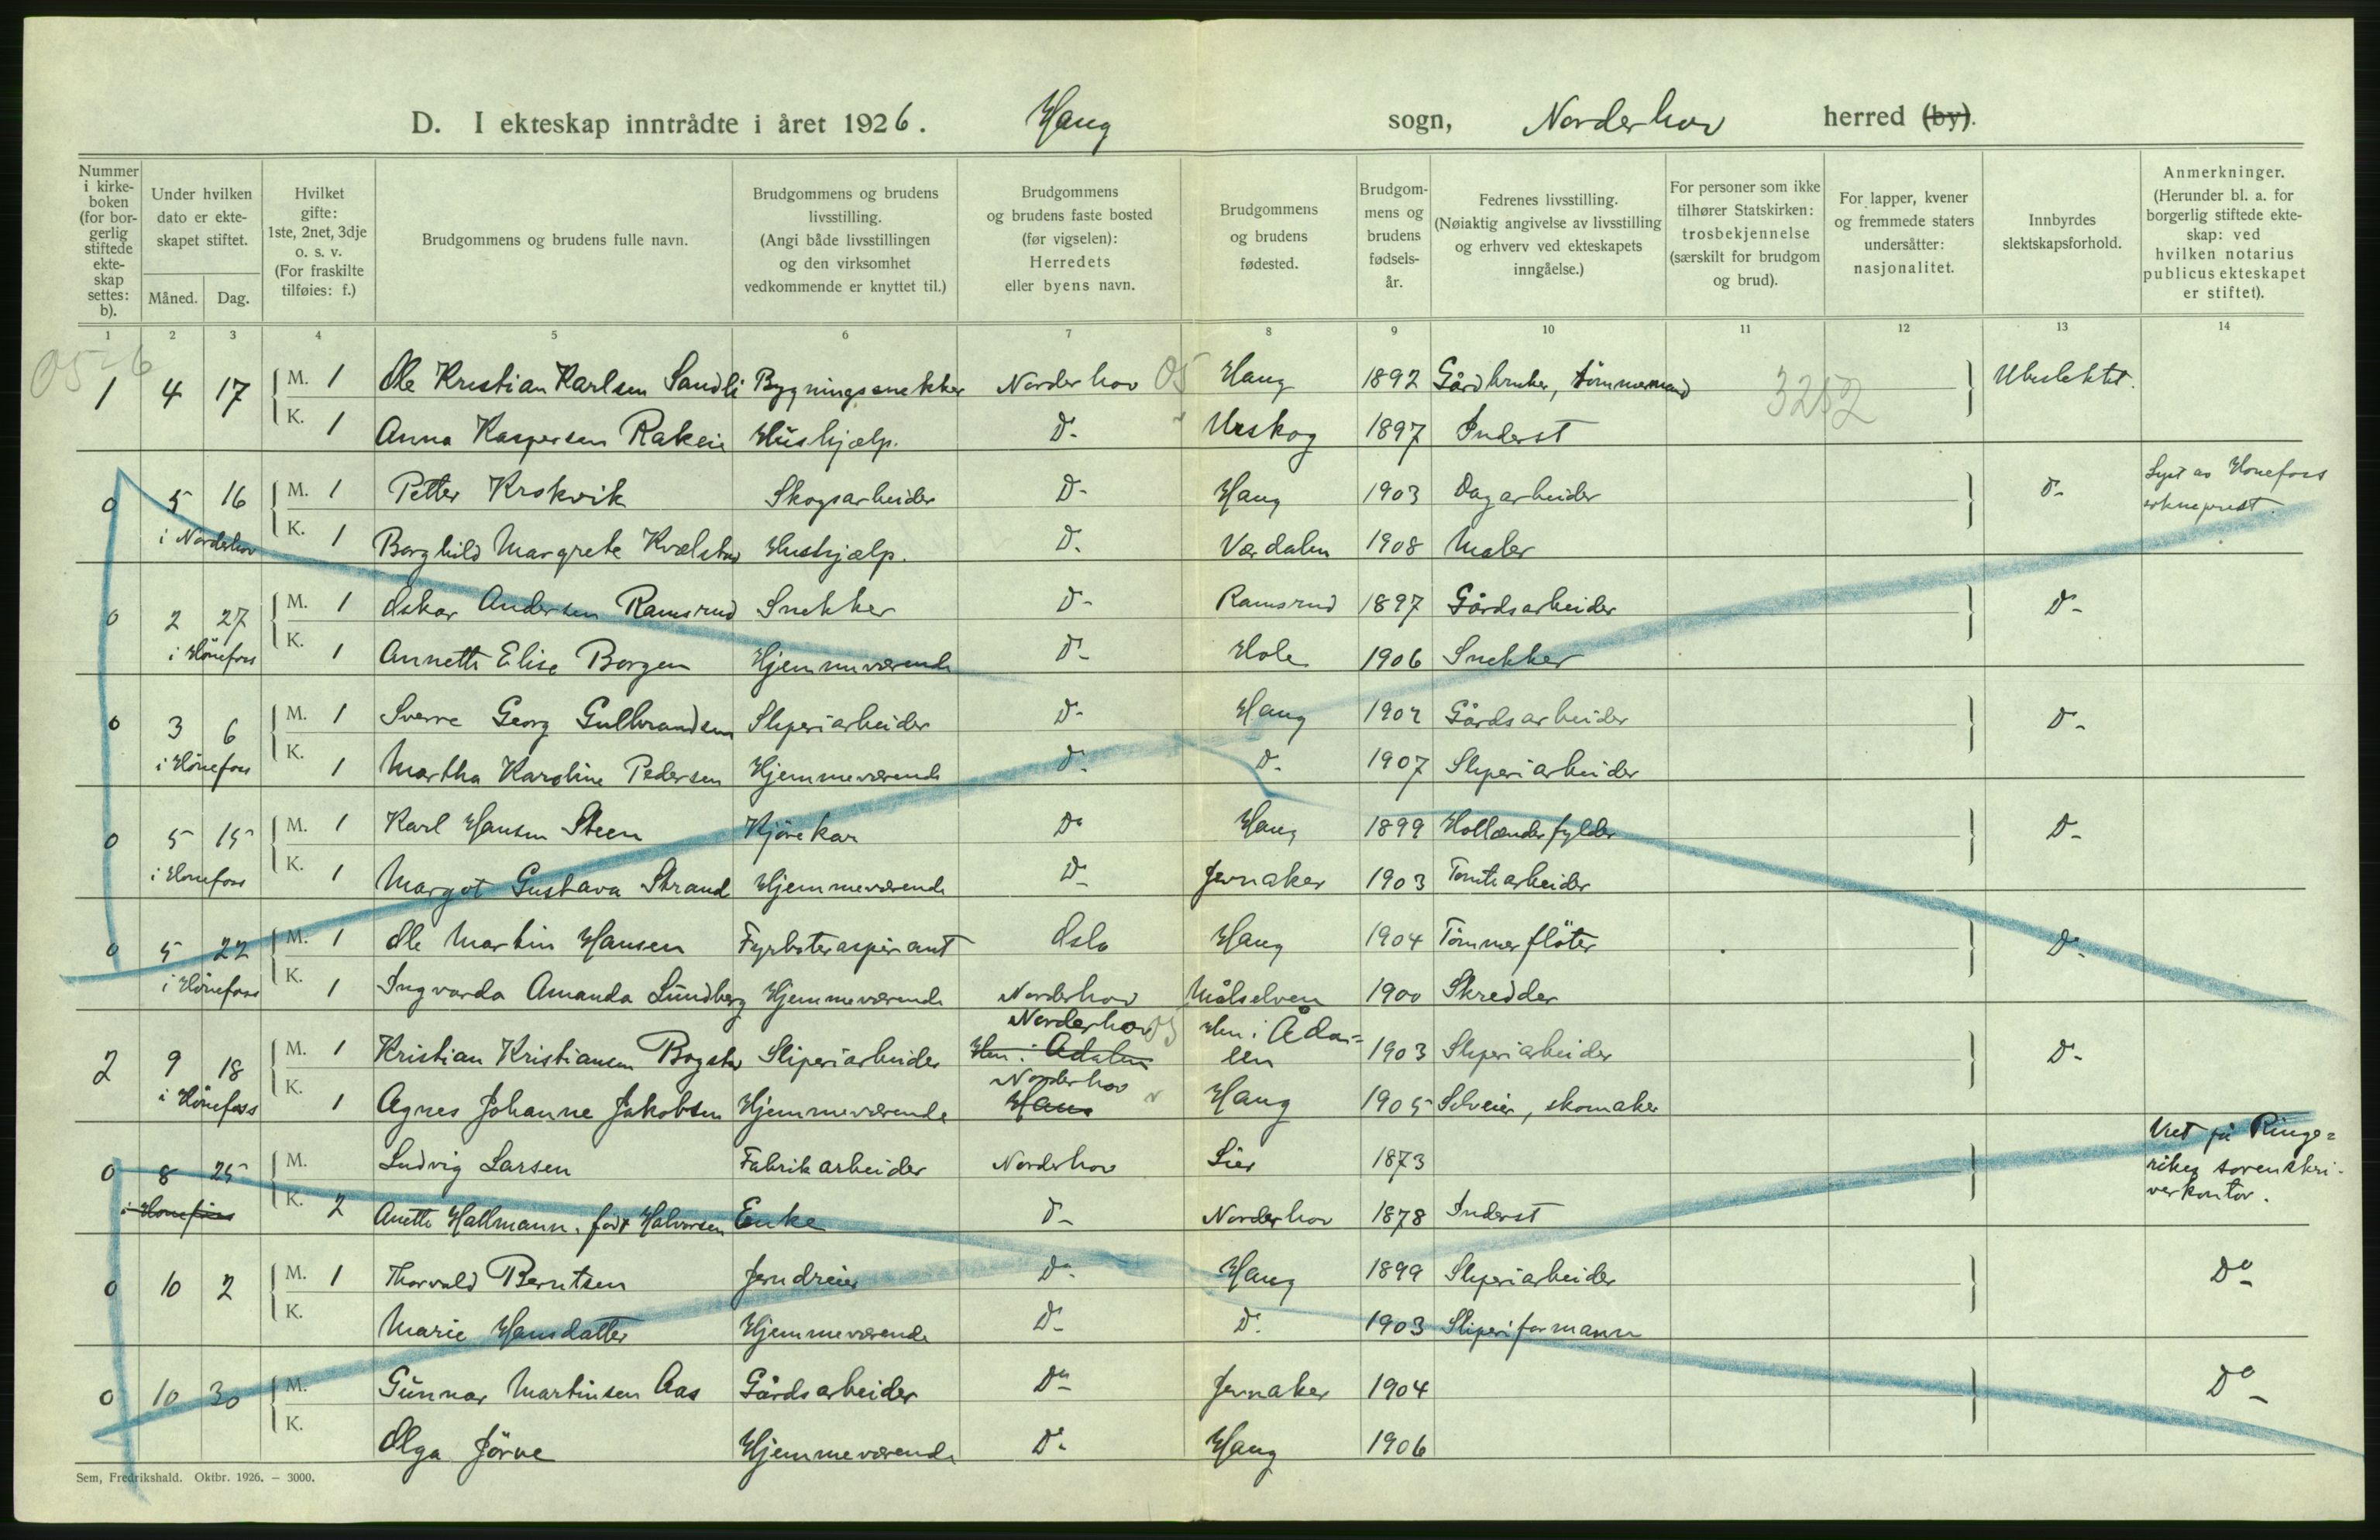 D. I ekteskap inntrådte i året 1926. Haug sogn, Norderhov herred (by).
Nummer i kirkeboken (for borgerlig stiftede ekteskap settes: b).
Under hvilken dato er ekteskapet stiftet.
Måned. Dag.
Hvilket gifte: 1ste, 2net, 3dje o. s. v. (For fraskilte tilføies: f.)
Brudgommens og brudens fulle navn.
Brudgommens og brudens livsstilling. (Angi både livsstillingen og den virksomhet vedkommende er knyttet til.)
Brudgommens og brudens faste bosted (før vigselen): Herredets eller byens navn.
Brudgommens og brudens fødested.
Brudgommens og brudens fødselsår.
Fedrenes livsstilling. (Nøiaktig angivelse av livsstilling og erhverv ved ekteskapets inngåelse.)
For personer som ikke tilhører Statskirken: trosbekjennelse (særskilt for brudgom og brud).
For lapper, kvener og fremmede staters undersåtter: nasjonalitet.
Innbyrdes slektskapsforhold.
Anmerkninger. (Herunder bl. a. for borgerlig stiftede ekteskap: ved hvilken notarius publicus ekteskapet er stiftet).
1 2 3 4 5 6 7 8 9 10 11 12 13 14
1 4 17 M. 1 Ole Kristian Karlsen Sandli Bygningssnekker Norderhov 05 Haug 1892 Gårdbruker, tömmermand 3252 Ubeslektet.
K. 1 Anna Kaspersen Rakeie Hüshjælp. D- Urskog 1897 Inderst
0 5 16 M. 1 Petter Krokvik Skogsarbeider D- Haug 1903 Dagarbeider D- Lyst av Hönefoss sokneprest.
i Norderhov K. 1 Borghild Margrete Kvelstad Hushjælp. D. Værdalen 1908 Maler
0 2 27 M. 1 Oskar Andersen Ramsrud Snekker D- Ramsrud 1897 Gårdsarbeider D-
i Hönefoss K. 1 Annette Elise Borgen Hjemmeværende D- Hole 1906 Snekker
0 3 6 M. 1 Sverre Georg Gulbrandsen Sliperiarbeider D- Haug 1902 Gårdsarbeider D-
i Hönefoss K. 1 Martha Karoline Pedersen Hjemmeværende D. D. 1907 Sliperiarbeider
0 5 15 M. 1 Karl Hansen Steen Kjörekar Do Haug 1899 Hollænderfylder D-
i Hönefoss K. 1 Margot Gustava Strand Hjemmeværende D- Jevnaker 1903 Tomtearbeider
0 5 22 M. 1 Ole Martin Hansen Fyrbøteraspirant Oslo Haug 1904 Tömmerflöter D-
i Hönefoss K. 1 Ingvarda Amanda Lündberg Hjemmeværende Norderhov Målselven 1900 Skredder
2 9 18 M. 1 Kristian Kristiansen Bogstad Sliperiarbeider Norderhov 05 Hen i Ådalen Hen i Ådalen 1903 Sliperiarbeider D-
i Hönefoss K. 1 Agnes Johanne Jakobsen Hjemmeværende Norderhov Haug Haug 1905 Selveier, skomaker
0 8 25 M. Ludvig Larsen Fabrikarbeider Norderhov Lier 1873 Viet på Ringerikes sorenskriverkontor.
i Hönefoss K. 2 Anette Hallmann, født Halvorsen Enke D- Norderhov 1878 Inderst
0 10 2 M. 1 Thorvald Berntsen Jerndreier Do Haug 1899 Sliperiarbeider Do
K. Marie Hansdatter Hjemmeværende D- D. 1903 Sliperiformann
0 10 30 M. Günnar Martinsen Aas Gårdsarbeider Do Jevnaker 1904 Do
K. Olga Jörne Hjemmeværende Do Haug 1906
Sem, Fredrikshald. Oktbr. 1926. — 3000.